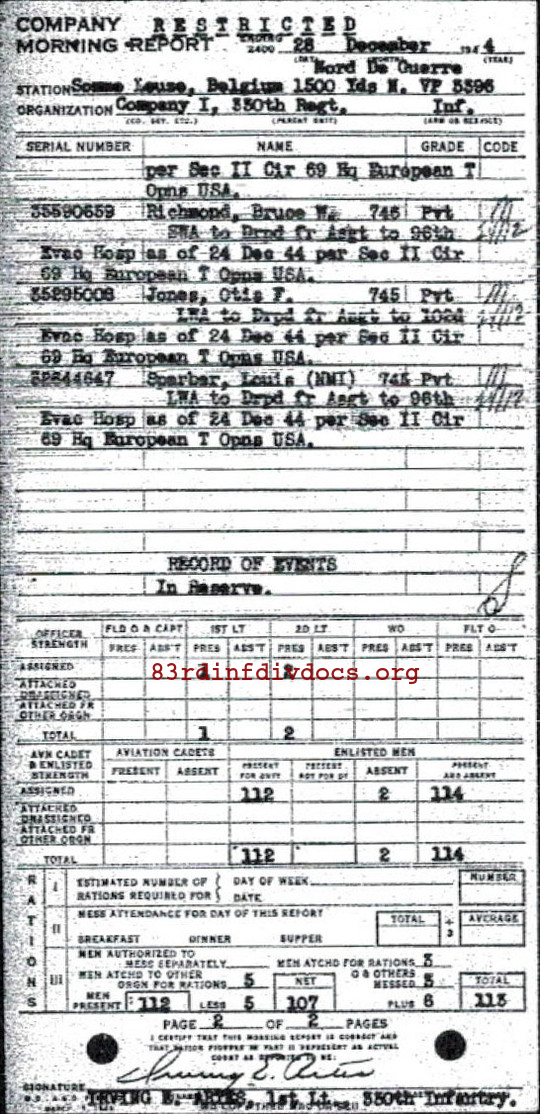 COMPANY RESTRICTED
MORNING REPORT ENDING 2400 28 December 1944
(DAY) (MONTH) (YEAR)
Nord De Guerre
STATION Somme Leuse, Belgium 1500 Yds N. VP 3396
ORGANIZATION Company I, 330th Regt. Inf.
(CO. DET. ETC.) (PARENT UNIT) (ARM OR SERVICE)
SERIAL NUMBER NAME GRADE CODE
per Sec II Cir 69 Hq European T
Opns USA.
35590659 Richmond, Bruce W. 745 Pvt
SWA to Drpd fr Asgt to 96th
Evac Hosp as of 24 Dec 44 per Sec II Cir
69 Hq European T Opns USA.
35295008 Jones, Otis F. 745 Pvt
LWA to Drpd fr Asgt to 102d
Evac Hosp as of 24 Dec 44 per Sec II Cir
69 Hq European T Opns USA.
32644647 Sparber, Louis (NMI) 745 Pvt
LWA to Drpd fr Asgt to 96th
Evac Hosp as of 24 Dec 44 per Sec II Cir
69 Hq European T Opns USA.
RECORD OF EVENTS
In Reserve.
OFFICER STRENGTH FLD O & CAPT 1ST LT 2D LT WO FLT O
PRES ABS'T PRES ABS'T PRES ABS'T PRES ABS'T PRES ABS'T
ASSIGNED 1 2
83rdinfdivdocs.org
ATTACHED UNASSIGNED
ATTACHED FR OTHER ORGN
TOTAL 1 2
AVN CADET & ENLISTED STRENGTH AVIATION CADETS ENLISTED MEN
PRESENT ABSENT PRESENT FOR DUTY PRESENT NOT FOR DY ABSENT PRESENT AND ABSENT
ASSIGNED 112 2 114
ATTACHED UNASSIGNED
ATTACHED FR OTHER ORGN
TOTAL 112 2 114
RATIONS
I ESTIMATED NUMBER OF RATIONS REQUIRED FOR DAY OF WEEK DATE NUMBER
II MESS ATTENDANCE FOR DAY OF THIS REPORT TOTAL ÷ 3 AVERAGE
BREAKFAST DINNER SUPPER
III MEN AUTHORIZED TO MESS SEPARATELY MEN ATCHD FOR RATIONS 3
MEN ATCHD TO OTHER ORGN FOR RATIONS 5 NET O & OTHERS MESSED 3 TOTAL
MEN PRESENT 112 LESS 5 107 PLUS 6 113
PAGE 2 OF 2 PAGES
I CERTIFY THAT THIS MORNING REPORT IS CORRECT AND
SIGNATURE IRVING E. ARTES, 1st Lt. 330th Infantry.